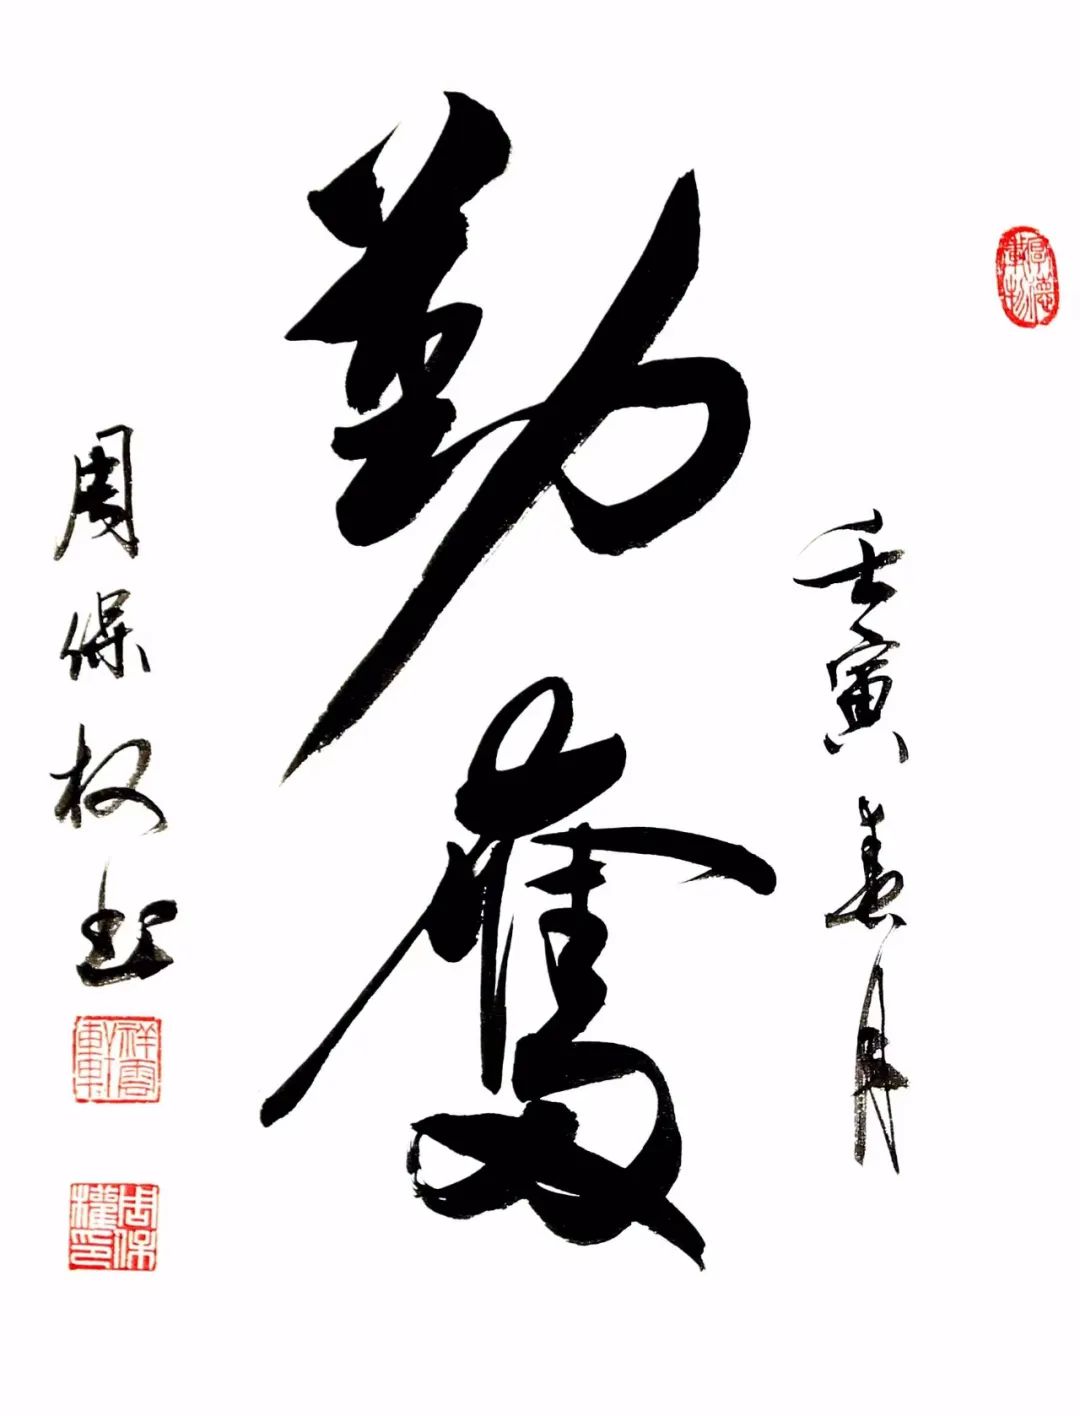 厚德載物
壬寅春月
勤奮
周保权
祥雲軒
周保權印